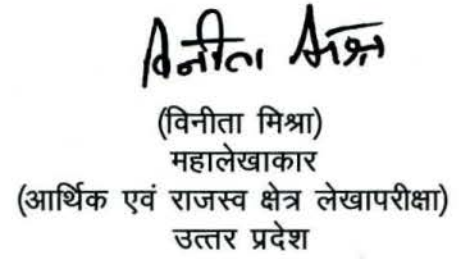 विनीता मिश्रा
(विनीता मिश्रा)
महालेखाकार
(आर्थिक एवं राजस्व क्षेत्र लेखापरीक्षा)
उत्तर प्रदेश